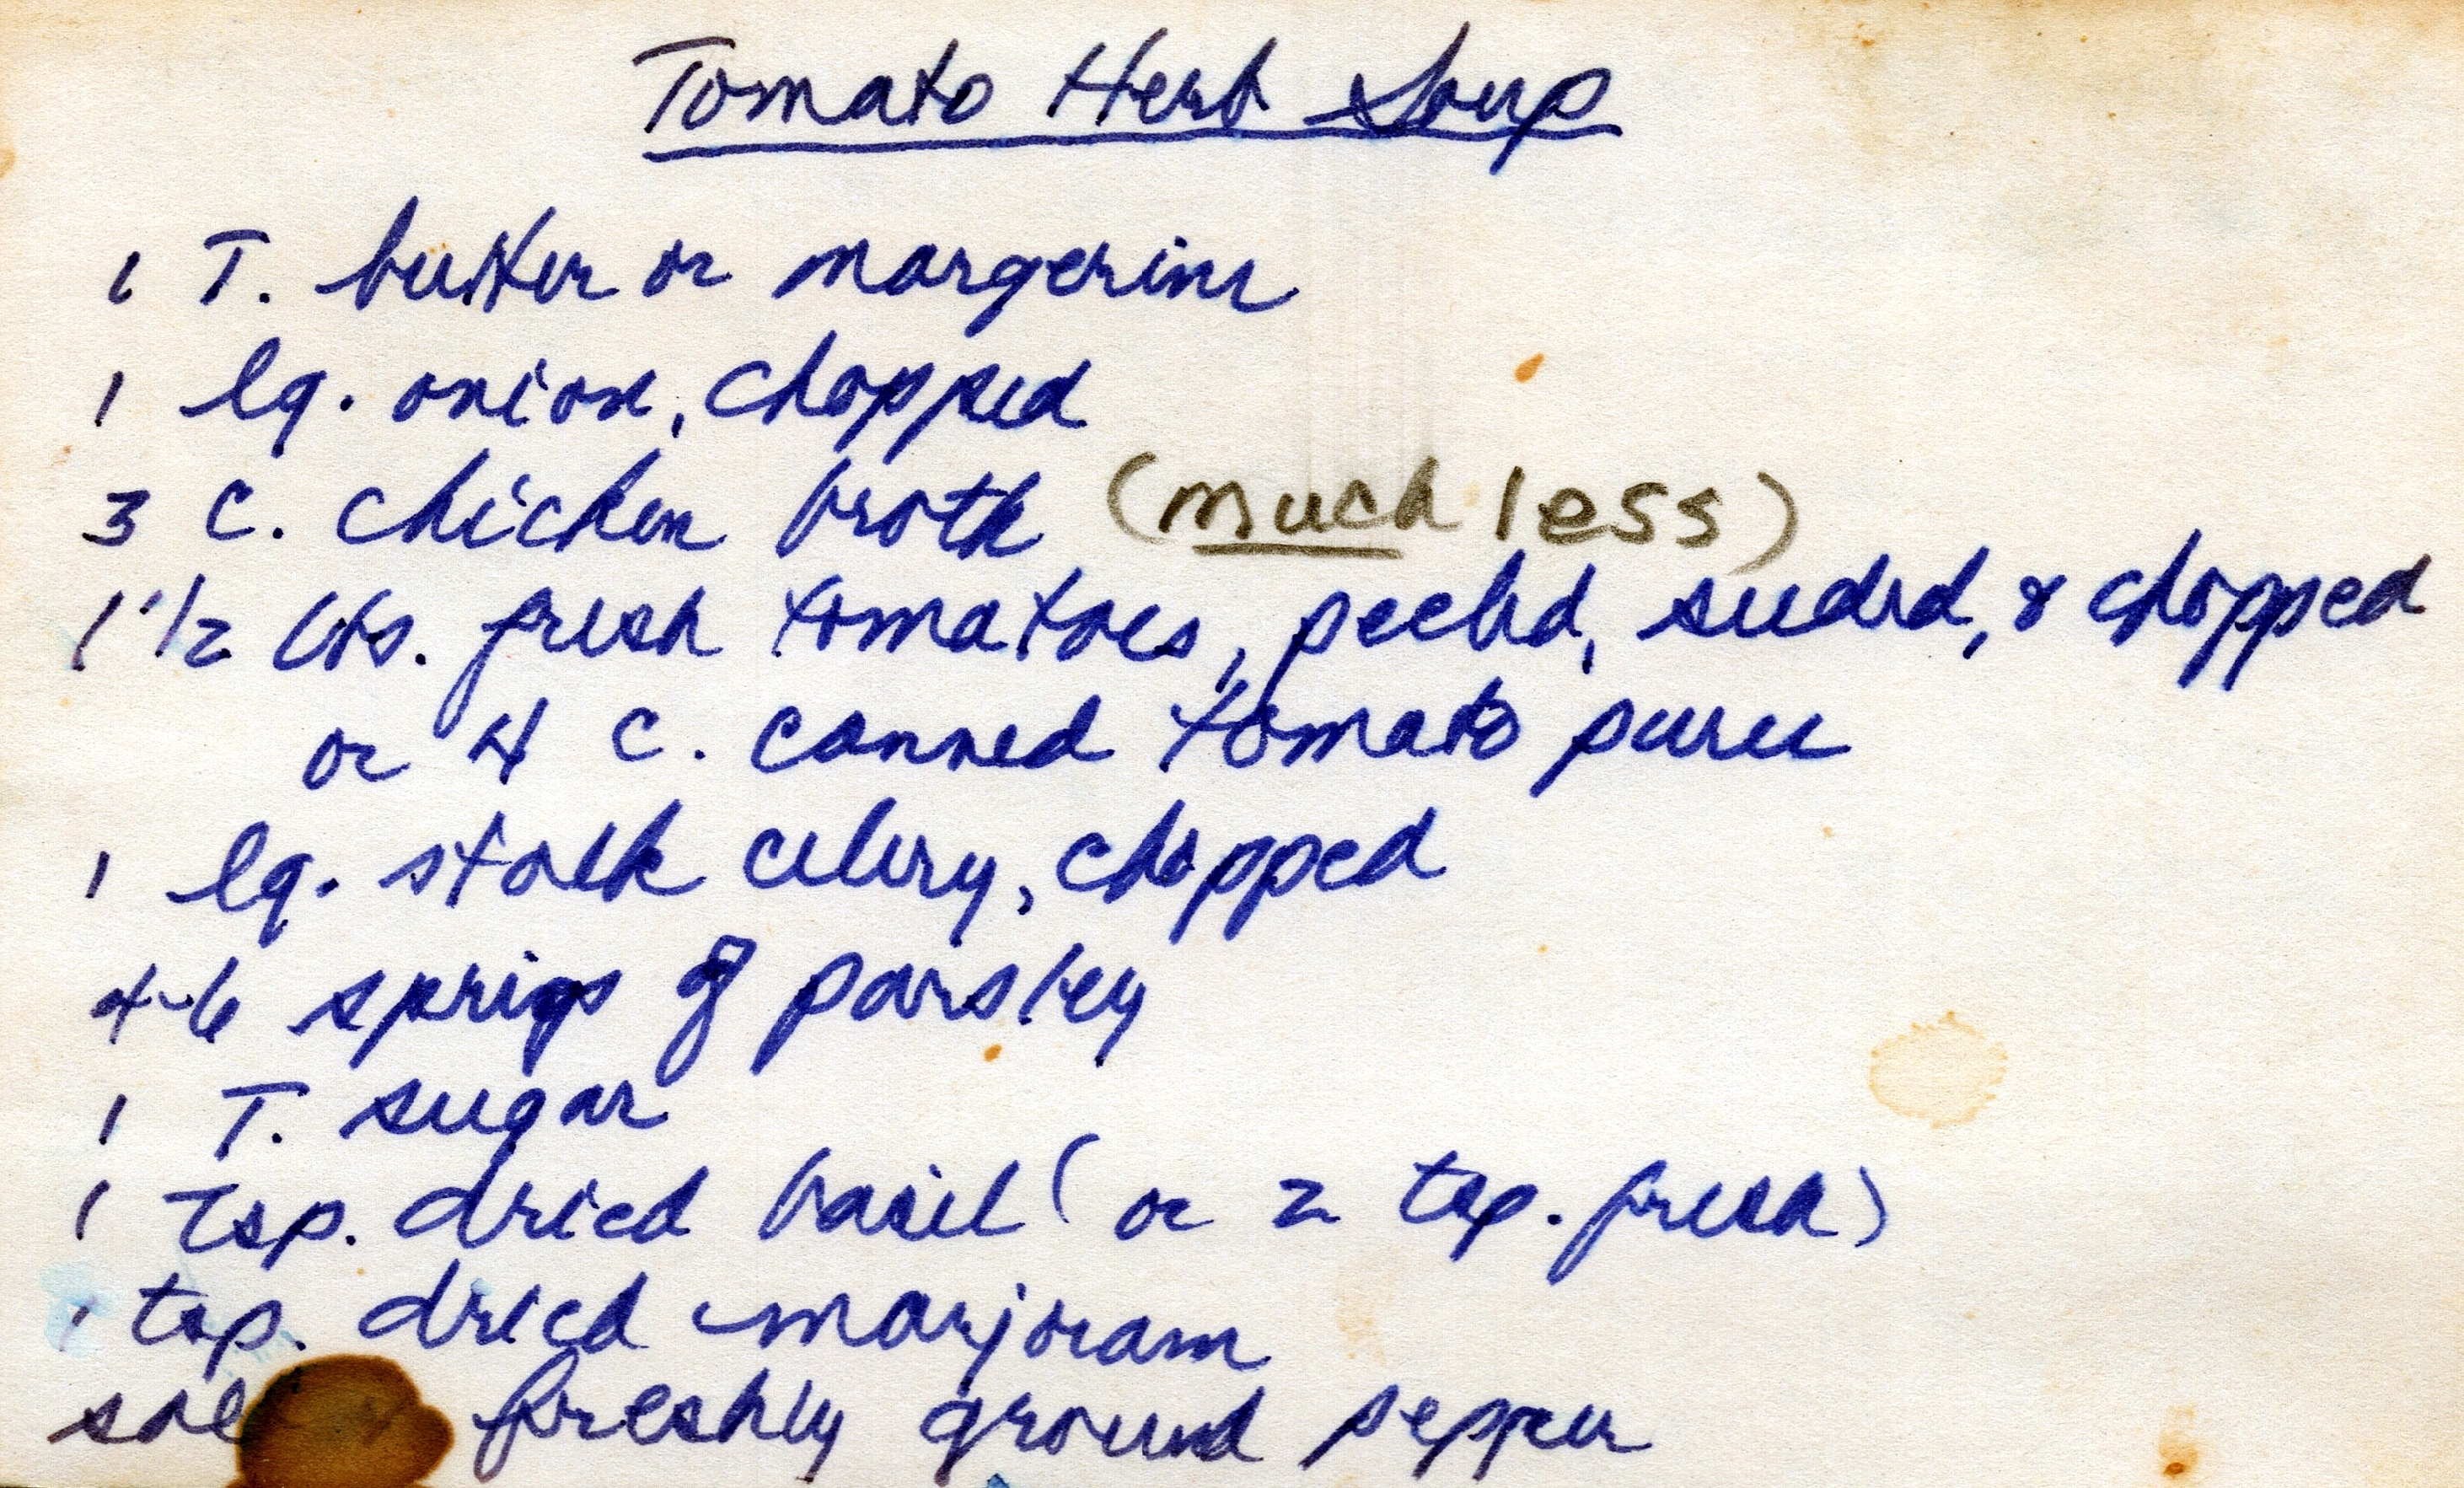 Tomato Herb Soup
1 T. butter or margerine
1 lg. onion, chopped
3 C. chicken broth (much less)
1 1/2 lbs. fresh tomatoes, peeled, seeded, & chopped
or 4 C. canned tomato puree
1 lg. stalk celery, chopped
4-6 sprigs of parsley
1 T. sugar
1 tsp. dried basil (or 2 tsp. fresh)
1 tsp. dried marjoram
freshly ground pepper